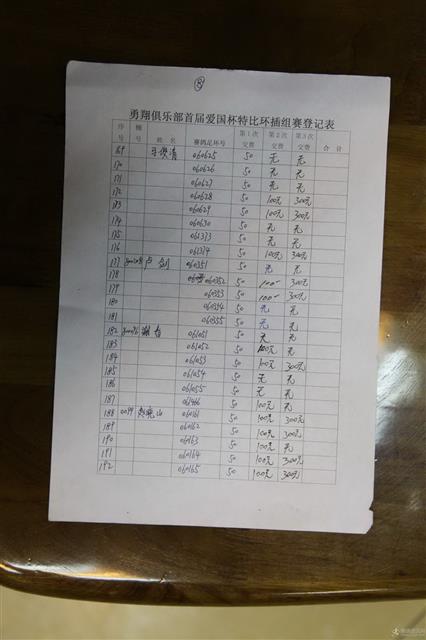 ⑧
勇翔俱乐部首届爱国杯特比环插组赛登记表
序号 棚号 姓名 赛鸽足环号 第1次交费 第2次交费 第3次交费 合计
169 060625 50 无 无
170 060626 50 无 无
171 060627 50 无 无
172 060628 50 100元 300元
173 060629 50 100元 300元
174 060630 50 无 无
175 061373 50 无 无
176 061374 50 100元 300元
177 卢剑 060351 50 无 无
178 060352 50 100 300元
179 060353 50 100 300元
180 060354 50 无 无
181 060355 50 无 无
182 061051 50 无 无
183 061052 50 100元 无
184 061053 50 100元 300元
185 061054 50 无 无
186 061055 50 无 无
187 50 100元 无
188 060161 50 100元 300元
189 060162 50 100元 300元
190 060163 50 100元 无
191 060164 50 100元 300元
192 060165 50 100元 300元